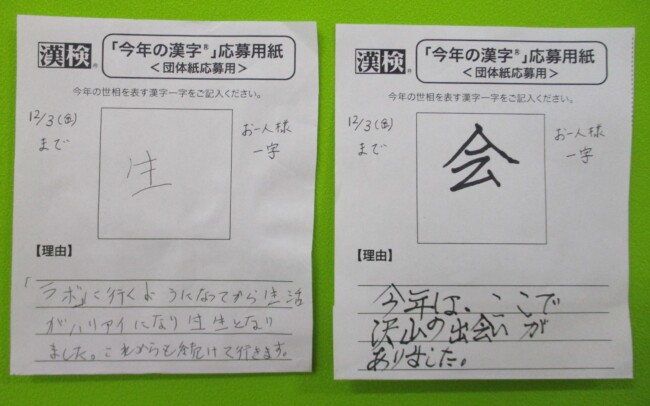 漢検®
「今年の漢字®」応募用紙
<団体紙応募用>
今年の世相を表す漢字一字をご記入ください。
12/3(金)
まで
お一人様
一字
生
【理由】
「ラボ」に行くようになってから生活
がハリアイになり
となり
ました。これからも続けて行きます。
漢検®
「今年の漢字®」応募用紙
<団体紙応募用>
今年の世相を表す漢字一字をご記入ください。
12/3(金)
まで
お一人様
一字
会
【理由】
今年は、ここで
沢山の出会いが
ありました。